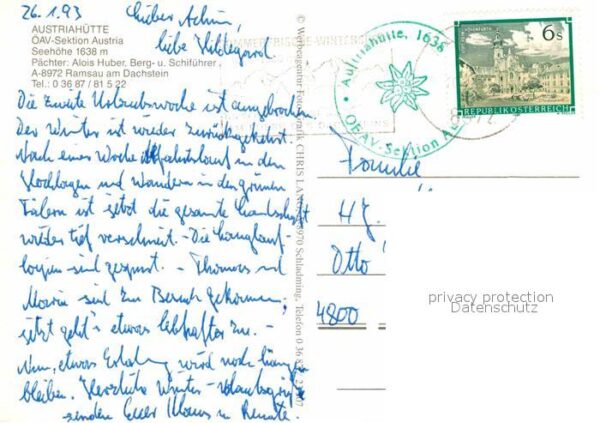 26.1.93 Lieber Achim,
liebe Hildegard
AUSTRIAHÜTTE
ÖAV-Sektion Austria
Seehöhe 1638 m
Pächter: Alois Huber, Berg- u. Schiführer
A-8972 Ramsau am Dachstein
Tel.: 0 36 87 / 81 5 22
Die zweite Urlaubswoche ist angebrochen.
Der Winter ist wieder zurückgekehrt.
Nach einer Woche in den
Hochlagen und Wandern in den grünen
Tälern ist jetzt die gesamte Landschaft
wieder tief verschneit. Die Langlauf-
loipen sind gespurt. - Thomas und
sind zu Besuch gekommen;
jetzt geht's etwas lebhafter zu. -
Nun, etwas Erholung wird noch hängen
bleiben. Herzliche Winter-Urlaubsgrüße
senden Euer Klaus u. Renate.
© Werbeagentur Fotografik CHRIS 8970 Schladming, Telefon 0 36 87
Austriahütte, 1638
ÖAV-Sektion
6s
REPUBLIK ÖSTERREICH
Familie
H J.
Otto
4800
privacy protection
Datenschutz